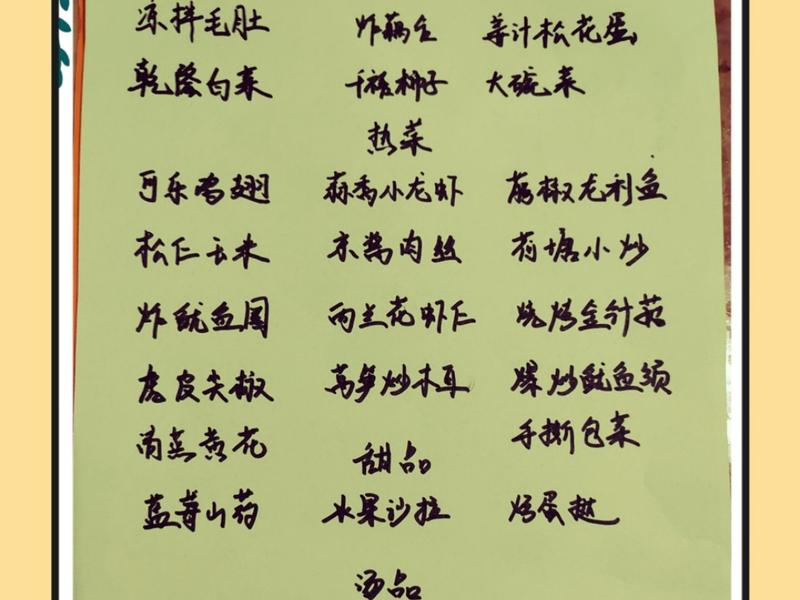 凉拌毛肚 炸藕合 姜汁松花蛋
乾隆白菜 千禧柿子 大碗菜
热菜
可乐鸡翅 蒜香小龙虾 藤椒龙利鱼
松仁玉米 京酱肉丝 荷塘小炒
炸鱿鱼圈 西兰花虾仁 烧烤金针菇
虎皮尖椒 莴笋炒木耳 爆炒鱿鱼须
清蒸黄花 手撕包菜
甜品
蓝莓山药 水果沙拉 烤蛋挞
汤品